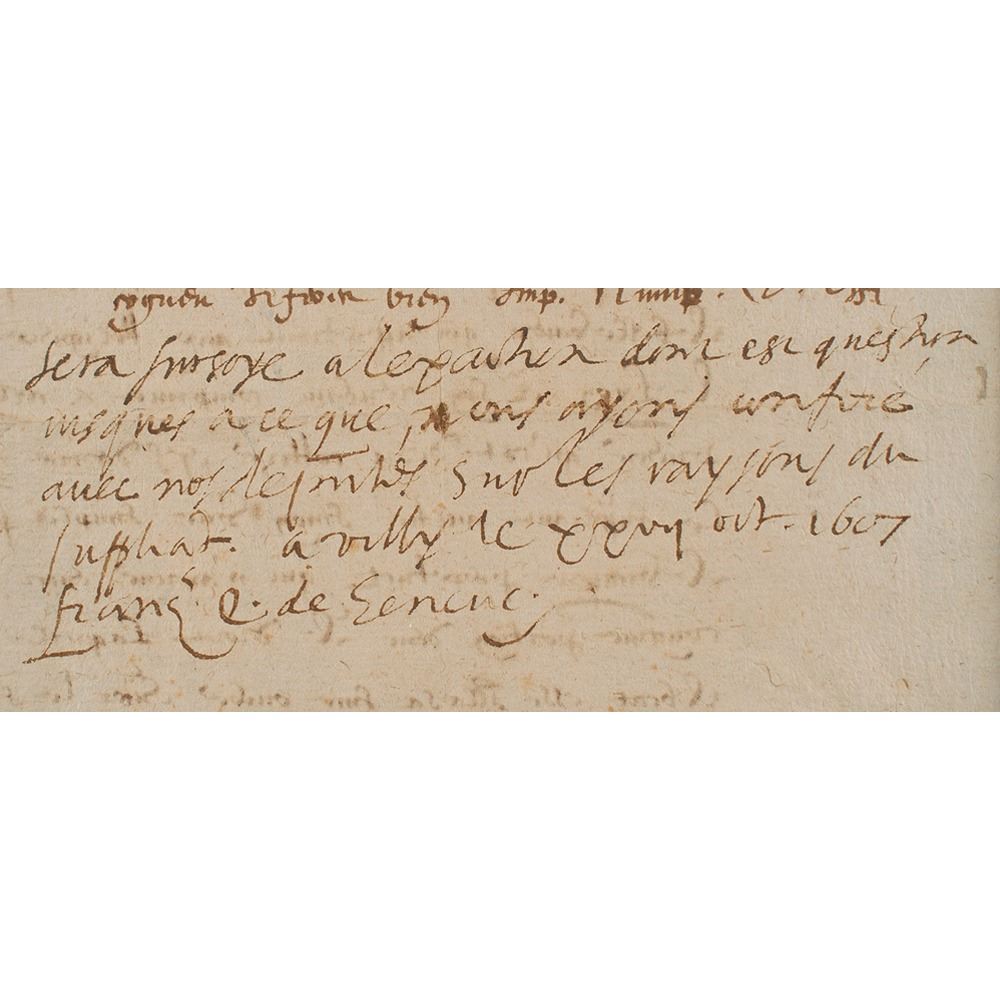 bien
sera sursoye a lexaction dont est question
iusques a ce que nous ayons confere
avec nos deputes sur les raysons du
suppliat. a villy le xxvij oct. 1607
Franç E. de Geneve.